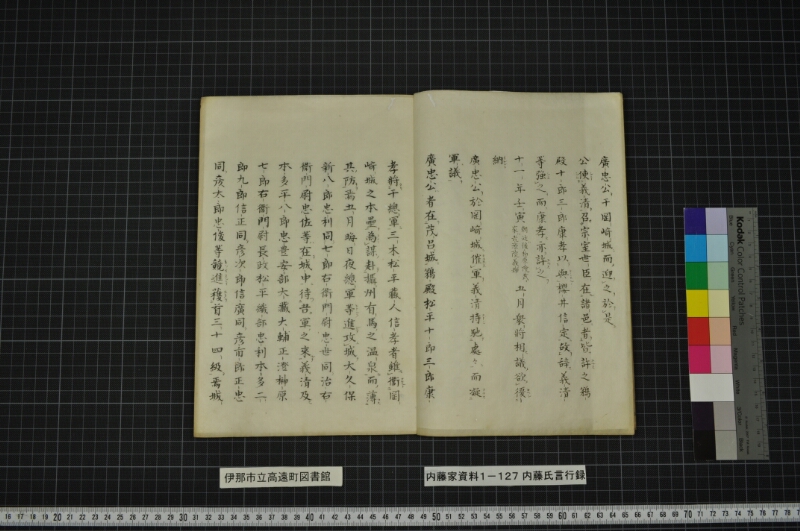 廣忠公于岡﨑城而迎之於是
公使義清召宗室世臣在諸邑者皆許之鵜
殿十郎三郎康孝以與櫻井信定故諸義清
等強之而康孝亦許之
十一年壬寅 五月衆將相議欲援
納
廣忠公於岡﨑城催軍義清特馳處々而凝
軍議
廣忠公者在茂呂城鵜殿松平十郎三郎康
孝將于總軍三木松平藏人信孝者雖衛岡
﨑城之本壘為謀赴攝州有馬之温泉而薄
其防焉五月晦日夜總軍等進攻城大久保
新八郎忠利同七郎右衛門尉忠世同治右
衛門尉忠佐等在城中待吾軍之來義清及
本多平八郎忠豊安部大藏大輔正澄榊原
七郎右衛門尉長政松平織部忠利本多二
郎九郎信正同彦次郎信廣同彦市郎正忠
同彦太郎忠俊等競進獲首三十四級焉城
伊那市立高遠町図書館
内藤家資料1－127 内藤氏言行録
Kodak Color Control Patches